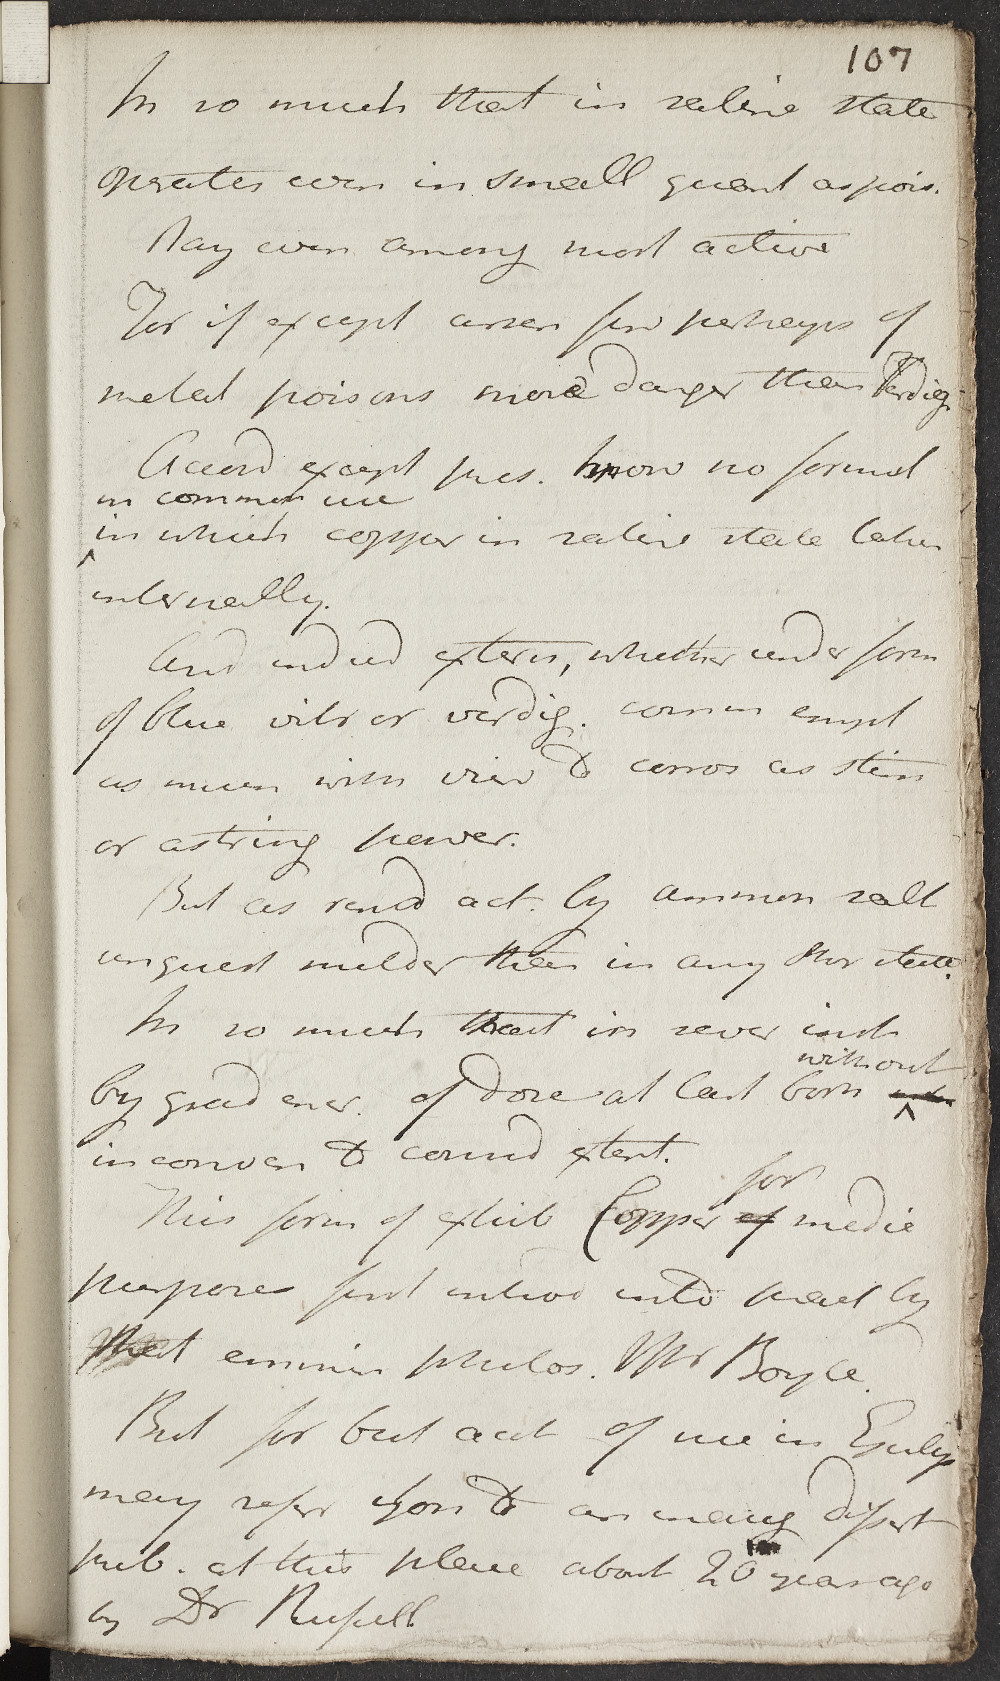 107
In so much that in saline state
operates even in small quant as pois.
Nay even among most active
For if except arsen few perhaps of
metal poisons more danger than Verdig
Accord except pres. know no formul
in common use
in which copper in saline state taken
internally.
And indeed extern, whether under form
of blue vitr or verdig. comm empl
as much with view to corros as stim
or astring power.
But as rend act. by ammon salt
unquest milder than in any other state.
In so much that in sever inst
by grad encr. of Dose at last born
without
inconven to consid extent.
for
This form of exhib Copper of medic
purposes first introd into pract by
that eminen philos. Mr Boyle.
But for best acct of use in Epilep
may refer you to an inaug Dissert
pub. at this place about 20 years ago
by Dr Russell